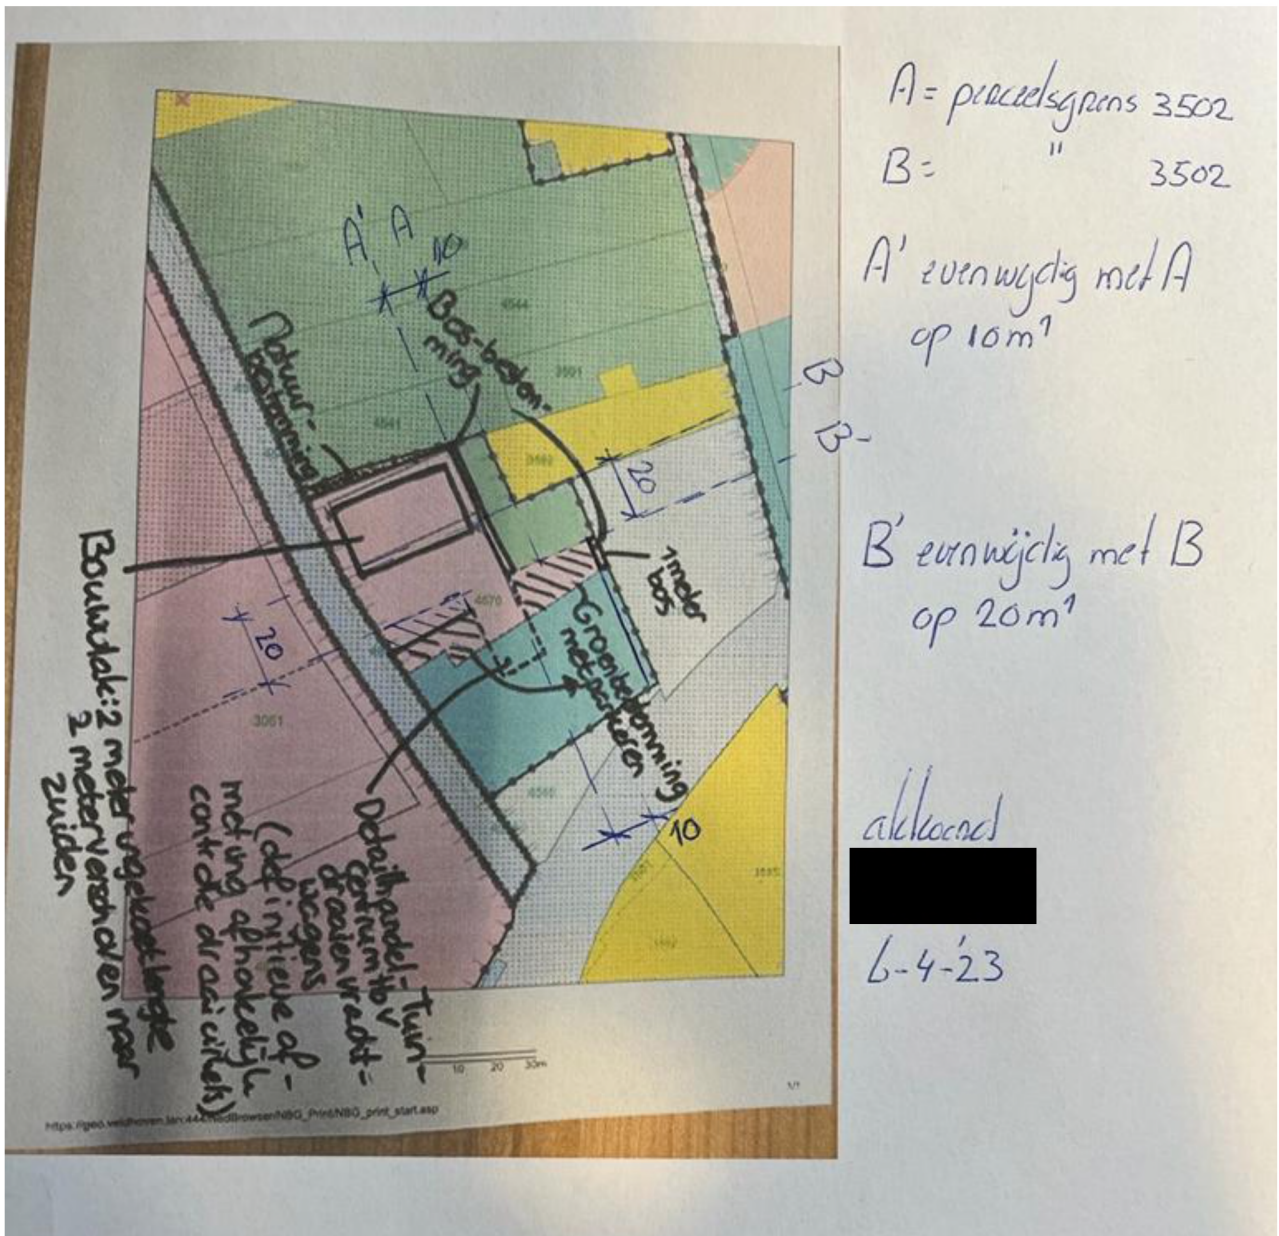 A = perceelsgrens 3502
B = " 3502
A' evenwijdig met A
op 10 m¹
B' evenwijdig met B
op 20 m¹
akkoord
6-4-'23
A' A
10
Bos-bestem-
ming
Natuur-
bestemming
4544
3501
4541
3502
B
B-
20
1 meter
bos
4670
Groenbestemming
met parkeren
20
3061
Bouwvlak: 2 meter ingekort lengte
2 meter verschoven naar
zuiden
Detailhandel-Tuin-
centrum tbv
draaien vracht-
wagens
(definitieve af-
meting afhankelijk
controle draaicirkels)
10
10 20 30m
1/1
https://geo.veldhoven.lan:444/NedBrowser/NBG_Print/NBG_print_start.asp